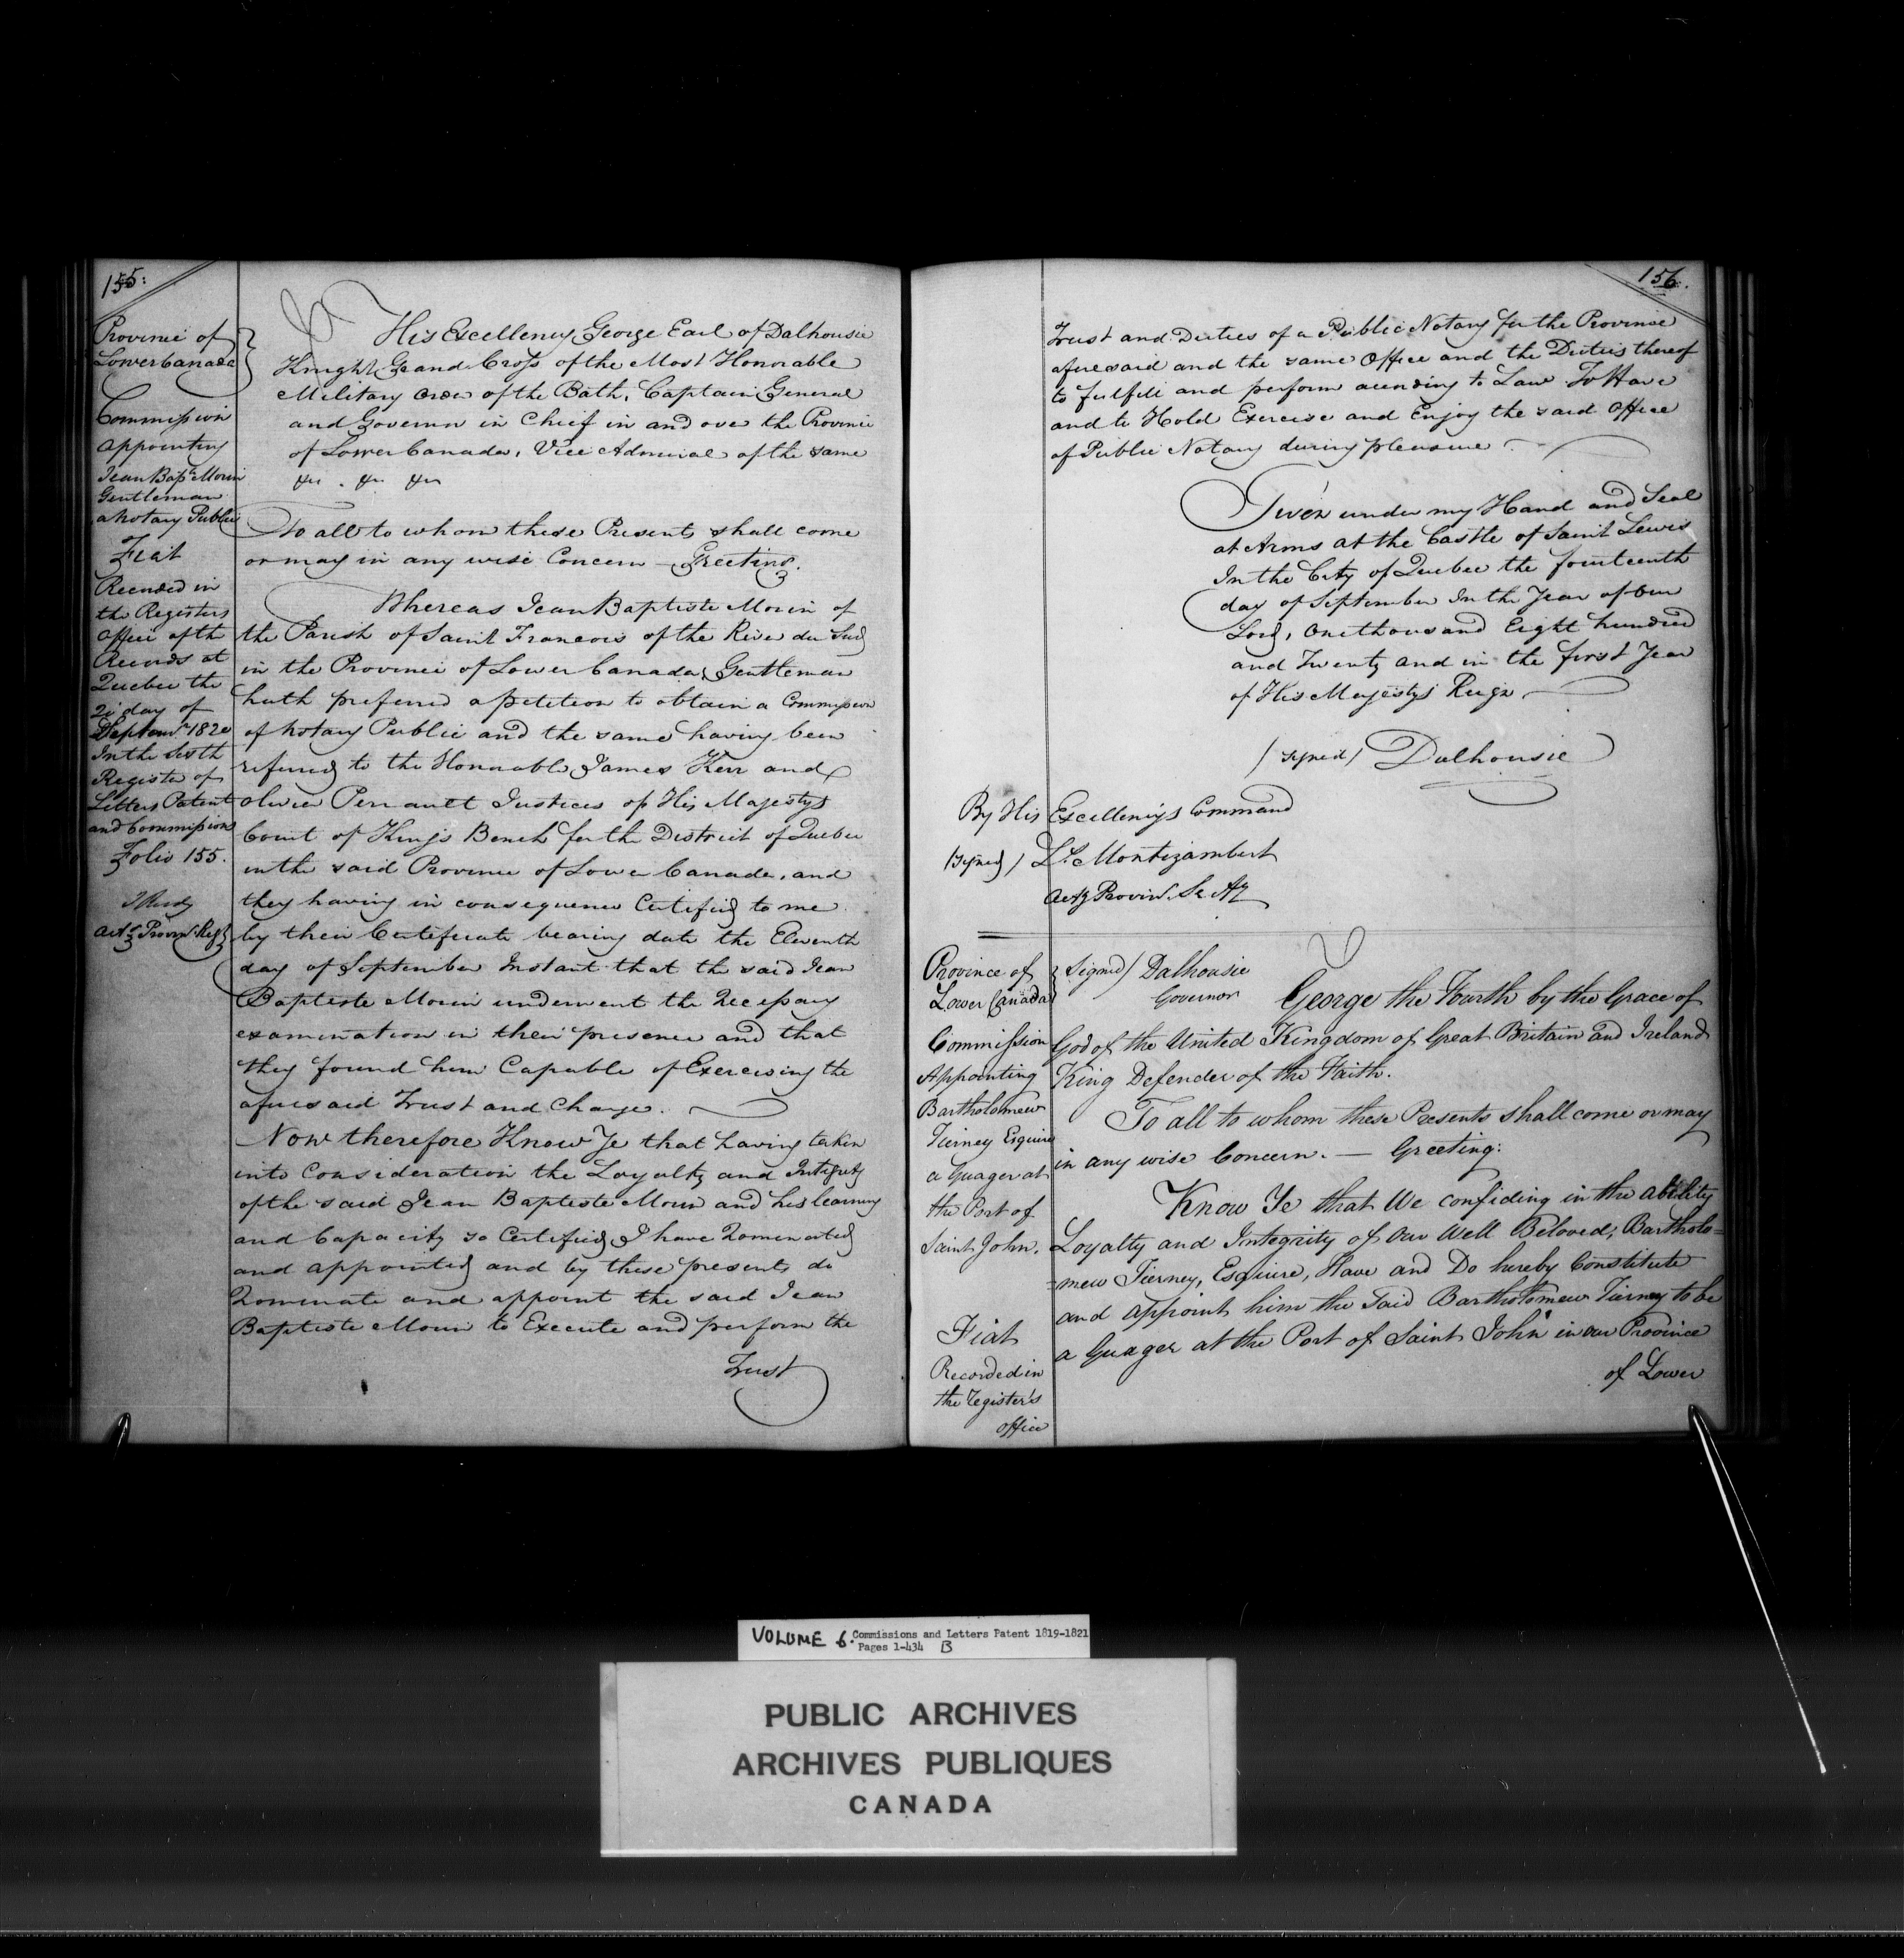 155:
Province of
Lower Canada
Commission
appointing
Jean Bapte Morin
Gentleman
a Notary Public
Fiat
Recorded in
the Registers
Office of the
Records at
Quebec the
day of
Septemr 1820
In the Sixth
Register of
Letters Patent
and Commissions
Folio 155.
Actg Provinl. Regr
His Excellency George Earl of Dalhousie
Knight Grand Cross of the Most Honorable
Military Order of the Bath, Captain General
and Governor in Chief in and over the Province
of Lower Canada, Vice Admiral of the same
&c. &c &c
To all to whom these Presents shall come
or may in any wise Concern - Greeting.
Whereas Jean Baptiste Morin of
the Parish of Saint Francois of the River du Sud
in the Province of Lower Canada, Gentleman
hath preferred a petition to obtain a Commission
of Notary Public and the same having been
referred to the Honorable James Kerr and
Olivier Perrault Justices of His Majestys
Court of King's Bench for the District of Quebec
in the said Province of Lower Canada, and
they having in consequence Certified to me
by their Certificate bearing date the Eleventh
day of September Instant that the said Jean
Baptiste Morin underwent the Necessary
examination in their presence and that
they found him Capable of Exercising the
aforesaid Trust and Charge.
Now therefore Know Ye that having taken
into Consideration the Loyalty and Integrity
of the said Jean Baptiste Morin and his learning
and Capacity so Certified, I have Nominated
and appointed and by these presents do
Nominate and appoint the said Jean
Baptiste Morin to Execute and perform the
Trust
156.
Trust and Duties of a Public Notary for the Province
aforesaid and the same Office and the Duties thereof
to fulfill and perform according to Law To Have
and to Hold Exercise and Enjoy the said Office
of Public Notary during pleasure.
Given under my Hand and Seal
at Arms at the Castle of Saint Lewis
In the City of Quebec the fourteenth
day of September In the Year of Our
Lord, One thousand Eight hundred
and Twenty and in the first Year
of His Majestys Reign
/signed/ Dalhousie
By His Excellency's Command
/signed/ Ls. Montizambert
Actg Provinl. Secy
Province of
Lower Canada
Commission
Appointing
Bartholomew
Tierney Esquire
a Guager at
the Port of
Saint John.
Fiat
Recorded in
the Register's
office
Signed/ Dalhousie
Governor
George the Fourth by the Grace of
God of the United Kingdom of Great Britain and Ireland
King Defender of the Faith.
To all to whom these Presents shall come or may
in any wise Concern. — Greeting:
Know Ye that We confiding in the ability
Loyalty and Integrity of Our Well Beloved, Bartholo=
=mew Tierney, Esquire, Have and Do hereby Constitute
and appoint him the Said Bartholomew Tierney to be
a Guager at the Port of Saint John in our Province
of Lower
VOLUME 6. Commissions and Letters Patent 1819-1821
Pages 1-434 B
PUBLIC ARCHIVES
ARCHIVES PUBLIQUES
CANADA